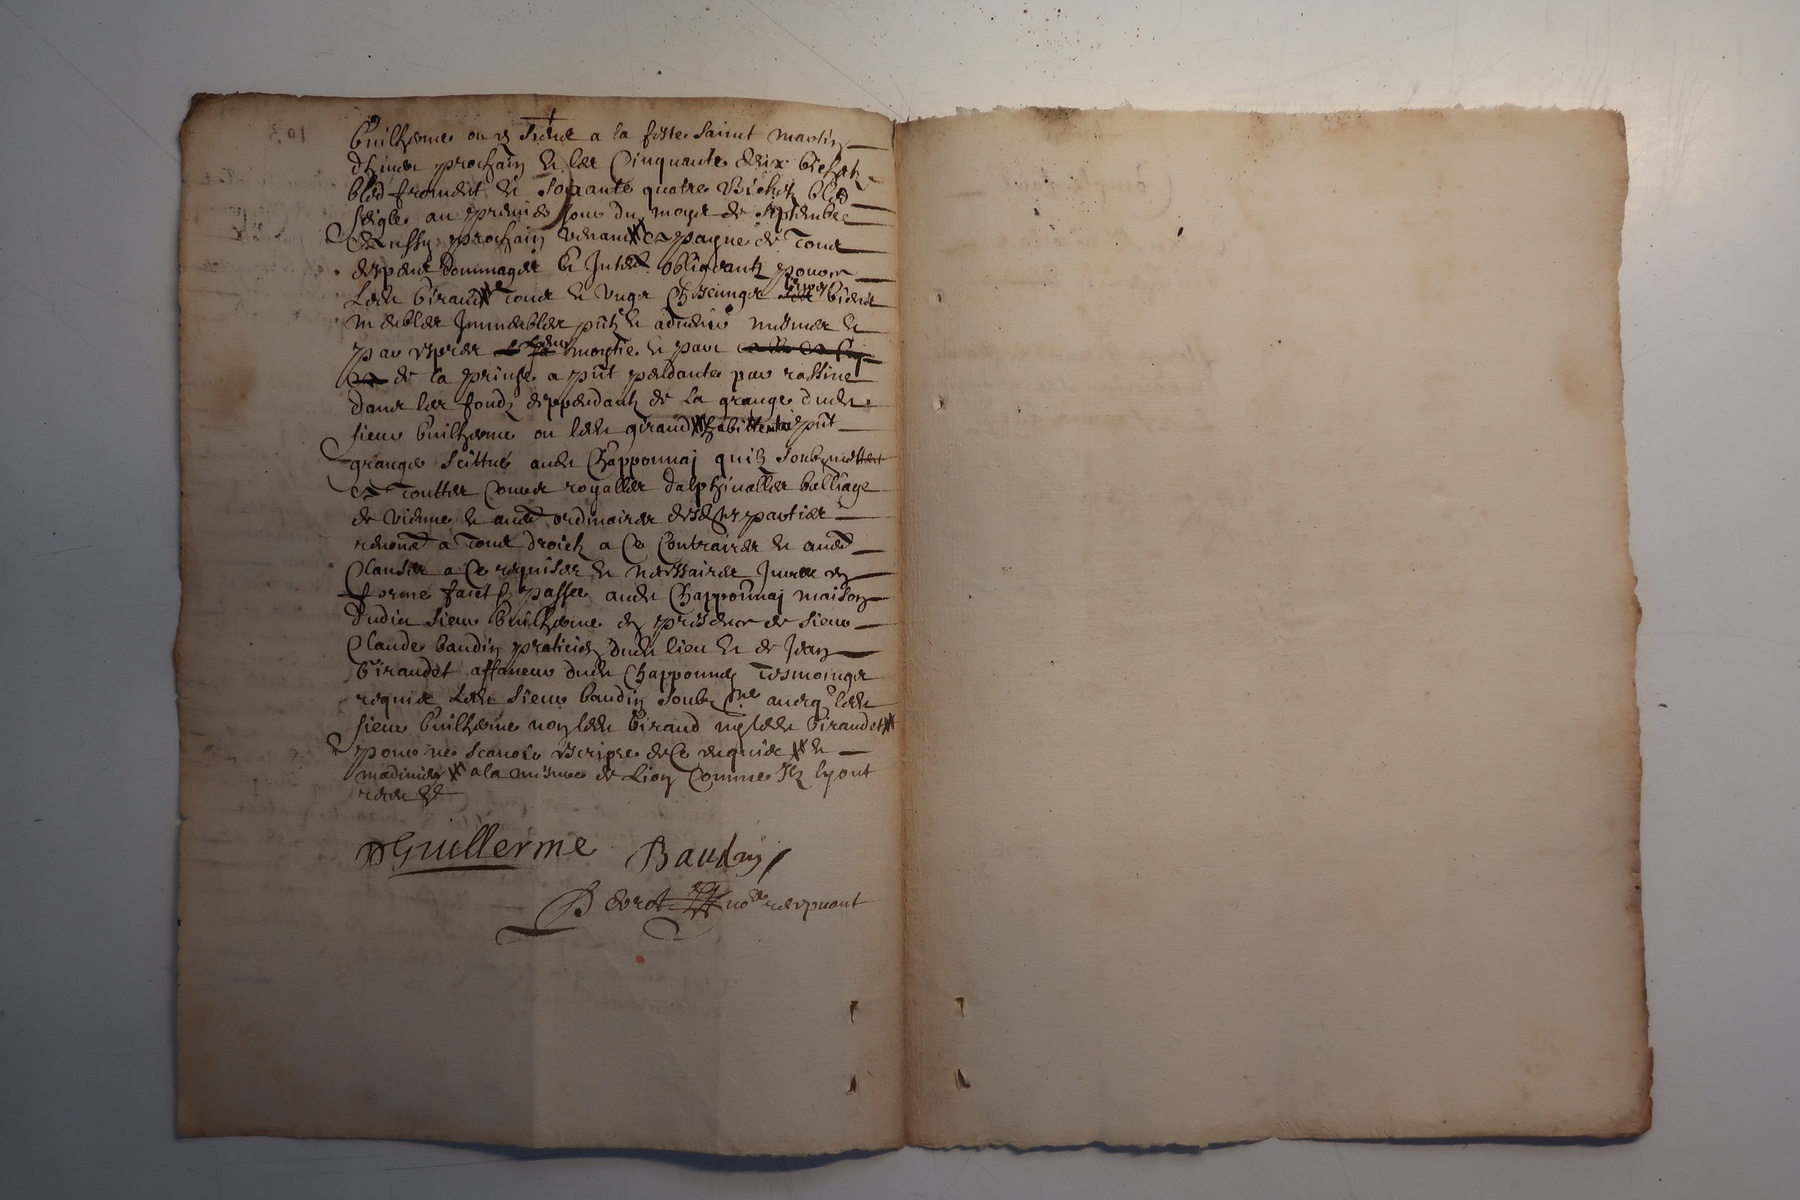 Guilherme ou a Sierve a la feste Saint Martin
dhiver prochain & les Cinquante deux bichetz
bled froment & Soixante quatre Bichetz bled
seigle au premier Jour du moys de septembre
aussy prochain venant a payne de tous
despens dommages & Intestz obligeantz pour
Led Giraud tous & Ungs Chascungs biens
meubles Immeubles pntz & advenir mesmes &
par expres moytie & part
de la prinse a pnt pendante par rassine
dans les fondz deppendantz de la grange dud
sieur Guilherme ou led giraud habitte pnt
grange scittué aud Chapponnaj quilz soubzmettent
a touttes Cours royalles dalphinalles balliage
de Vienne & aud ordinaires desd parties
renonct a tous droictz a Ce Contraires & aud
Clauses a Ce requises & nessaires Jures en
forme faict & passee aud Chapponnaj maison
dudit sieur Guilherme en presence de sieur
Claude baudin praticien dud lieu & de Jean
Giraudet affaneur dud Chapponnay tesmoings
requis Led sieur baudin soubz avecq led
sieur Guilherme non led Giraud ny led Giraudet
pour ne scavoir escripre de Ce enquis &
a la mesure de Lion Comme Ilz lyont

Guillerme Baudin
Derot no recepvant